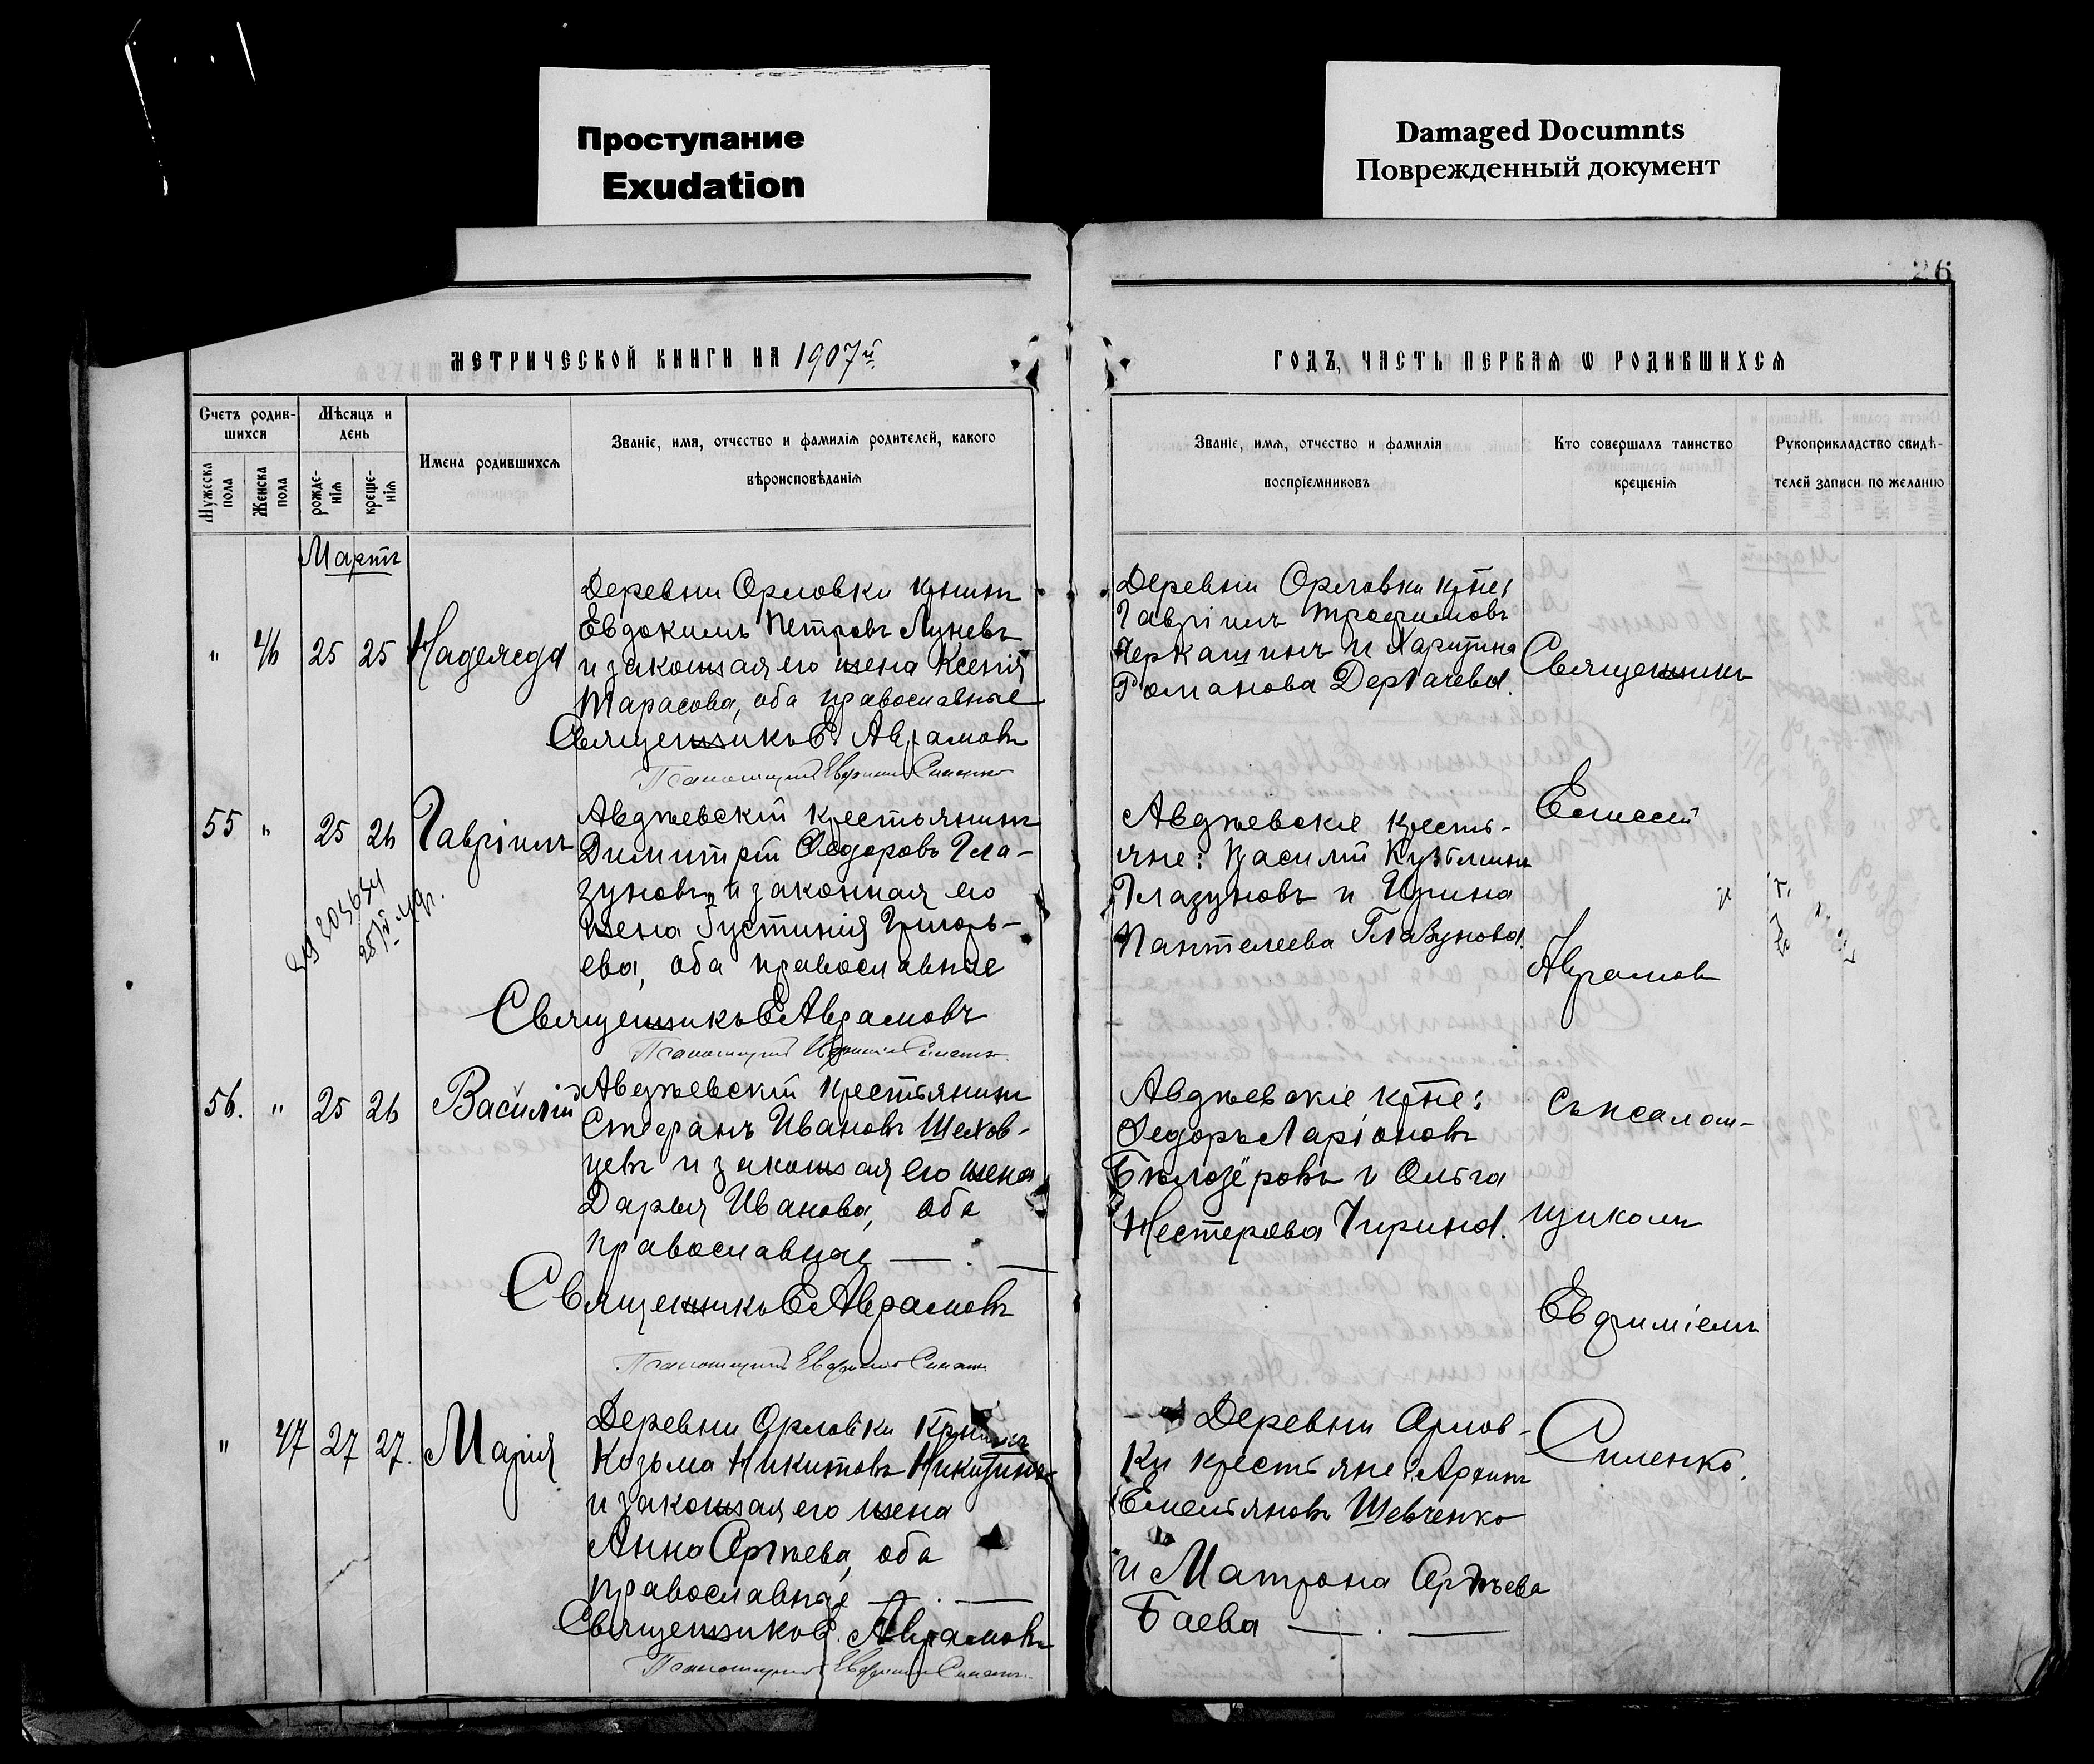 Проступание
Exudation
Damaged Documnts
Поврежденный документ
26
МЕТРИЧЕСКОЙ КНИГИ НА 1907й
ГОДЪ, ЧАСТЬ ПЕРВАЯ Ѡ РОДИВШИХСЯ
Счетъ родив-
шихся
Мѣсяцъ и
день
Мужеска
пола
Женска
пола
рожде-
нія
креще-
нія
Имена родившихся
Званіе, имя, отчество и фамилія родителей, какого
вѣроисповѣданія
Званіе, имя, отчество и фамилія
воспріемниковъ
Кто совершалъ таинство
крещенія
Рукоприкладство свидѣ-
телей записи по желанію
Мартъ
" 46 25 25 Надежда
Деревни Орловки крнинъ
Евдокимъ Петровъ Луневъ
и законная его жена Ксенія
Тарасова, оба православные
Священникъ Е. Аврамовъ
Псаломщикъ Евфимій Силенко
Деревни Орловки крне:
Гавріилъ Трофимовъ
Черкашинъ и Харитина
Романова Дергачева.
Священникъ
55 " 25 26 Гавріилъ
25/IV 49г.
Авдѣевскій крестьянинъ
Димитрій Ѳедоровъ Гла-
зуновъ и законная его
жена Іустинія Григорь-
ева, оба православные
Священникъ Е Аврамовъ
Псаломщикъ Евфимій Силенко
Авдѣевскіе кресть-
яне: Василій Кузьминъ
Глазуновъ и Ирина
Пантелеева Глазунова.
Аврамов
56. " 25 26 Василій
Авдѣевскій крестьянинъ
Стефанъ Ивановъ Шехов-
цевъ и законная его жена
Дарья Иванова, оба
православные — . —
Священникъ Е Аврамовъ
Псаломщикъ Евфимій Силенко
Авдѣевскіе крне:
Ѳедоръ Ларіоновъ
Бѣлозёровъ и Ольга
Нестерова Чирина.
съ псалом-
щикомъ
Евфиміемъ
" 47 27 27. Марія
Деревни Орловки крнинъ
Козьма Никитовъ Никитинъ
и законная его жена
Анна Сергѣева, оба
православные — . —
Священникъ Е. Аврамовъ
Псаломщикъ Евфимій Силенко
Деревни Орлов-
ки крестьяне: Архипъ
Емельяновъ Шевченко
и Матрона
Баева — . —
Силенко.